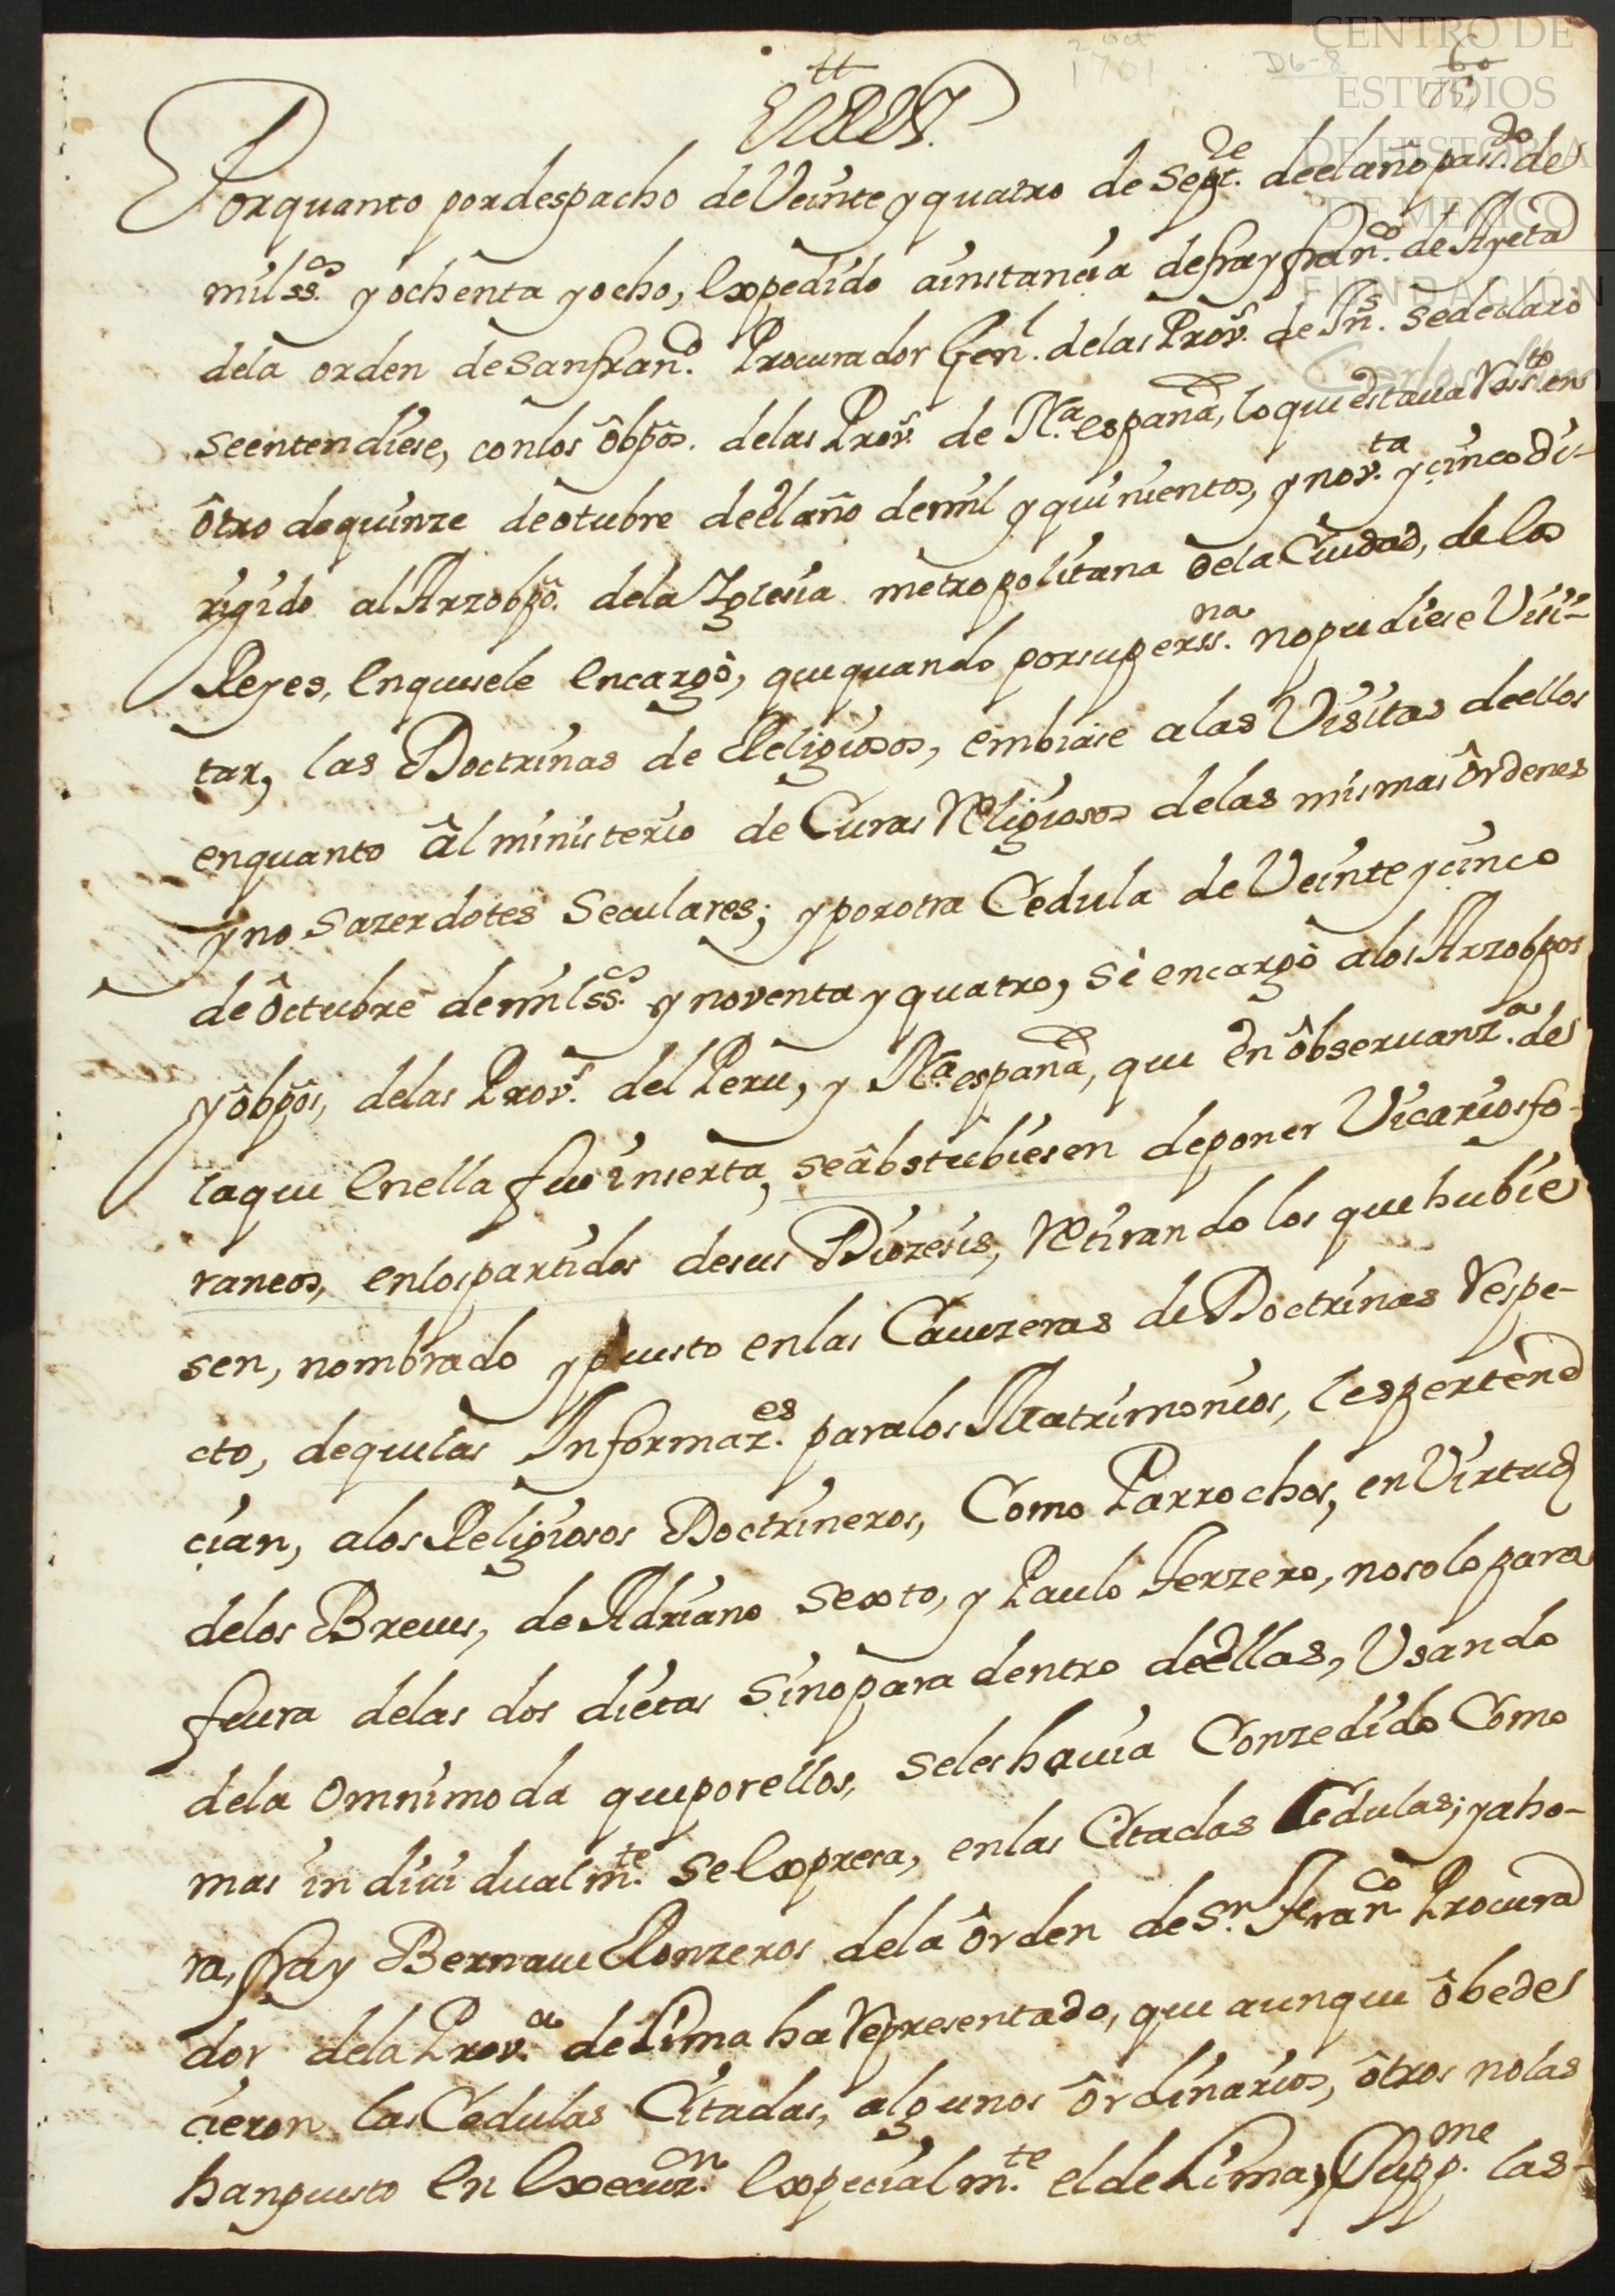 2 Oct
1701
D6-8
CENTRO DE
ESTUDIOS
DE HISTORIA
DE MEXICO
FUNDACIÓN
tt
El Rey.
Porquanto por despacho de Veinte y quatro de Sept.re de el año pas.do de
mil ss.os y ochenta y ocho, Expedido a instancia de fray fran.co de Ayeta
dela orden de san fran.co Procurador Gen.l delas Prov.s de Yn.s se declarò
se entendiese, con los ôbpôs. delas Prov.s de N.a españa, lo que estaua Resu.to en
ôtro de quinze de otubre de el año de mil y quinientos, y nov.ta y cinco di-
rigido al Arzobpô. dela Yglesia metropolitana dela Ciudad, de los
Reyes, En que se le Encargò, que quando por su perss.na no pudiese Visi-
tar, las Doctrinas de Religiosos, embiase a las Visitas de ellos
en quanto âl ministerio de Curas Religiosos delas mismas ôrdenes
y no Sazerdotes Seculares; y por otra Cedula de Veinte y cinco
de ôctubre de mil ss.os y noventa y quatro, se encargò a los Arzobpos
y ôbpôs, delas Prov.s del Peru, y N.a españa, que en ôbseruanz.a de
la que En ella fue inserta, se âbstubiesen de poner Vicarios fo-
raneos, en los partidos de sus Diozesis, Retirando los que hubie
sen, nombrado y puesto en las Cauezeras de Doctrinas Respe-
cto, de que las Informaz.es para los Matrimonios, les pertene
cian, a los Religiosos Doctrineros, Como Parrochos, en Virtud
de los Breues, de Adriano Sexto, y Paulo Terzero, no solo para
fuera delas dos dietas Sino para dentro de ellas, Vsando
dela Omnimoda que por ellos, se les hauia Conzedido Como
mas indiuidualm.te se Expresa, en las Citadas Cedulas; y aho-
ra, fray Bernaue Ronzeros dela ôrden de S.n Fran.co Procura
dor dela Prov.a de Lima ha Representado, que aunque ôbede
cieron las Cedulas Citadas, algunos ôrdinarios, ôtros no las
han puesto En Execuz.on Expecialm.te el de Lima, Supp.me las